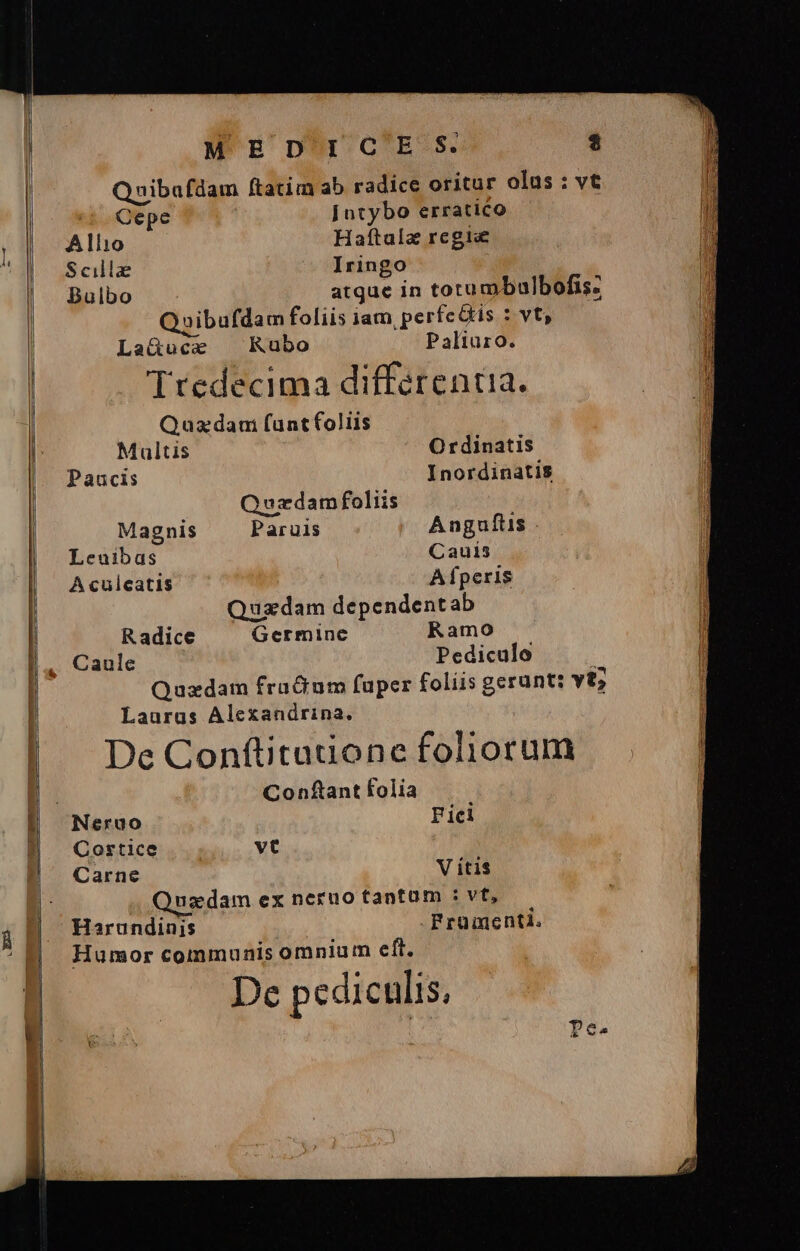 MEDICES. 8
Quibuſdam ſtatim ab radice oritur olus : vt
Cepe Intybo erratico
Allio Haſtulæ regiæ
Scillæ Iringo
Bulbo atque in totum bulboſis;
Quibuſdam foliis iam perfectis : vt,
Lactucæ Rubo Paliuro.
Tredecima differentia.
Quædam ſunt foliis
Multis Ordinatis
Paucis Inordinatis
Quædam foliis
Magnis Paruis Anguſtis
Leuibus Cauis
Aculeatis Aſperis
Quædam dependent ab
Radice Germine Ramo
Caule Pediculo
Quædam fructum ſuper foliis gerunt: vt,
Laurus Alexandrina.
De Conſtitutione foliorum
Conſtant folia
Neruo Fici
Cortice vt
Carne Vitis
Quædam ex neruo tantum : vt,
Harundinis Frumenti.
Humor communis omnium eſt.
De pediculis.
Pe-